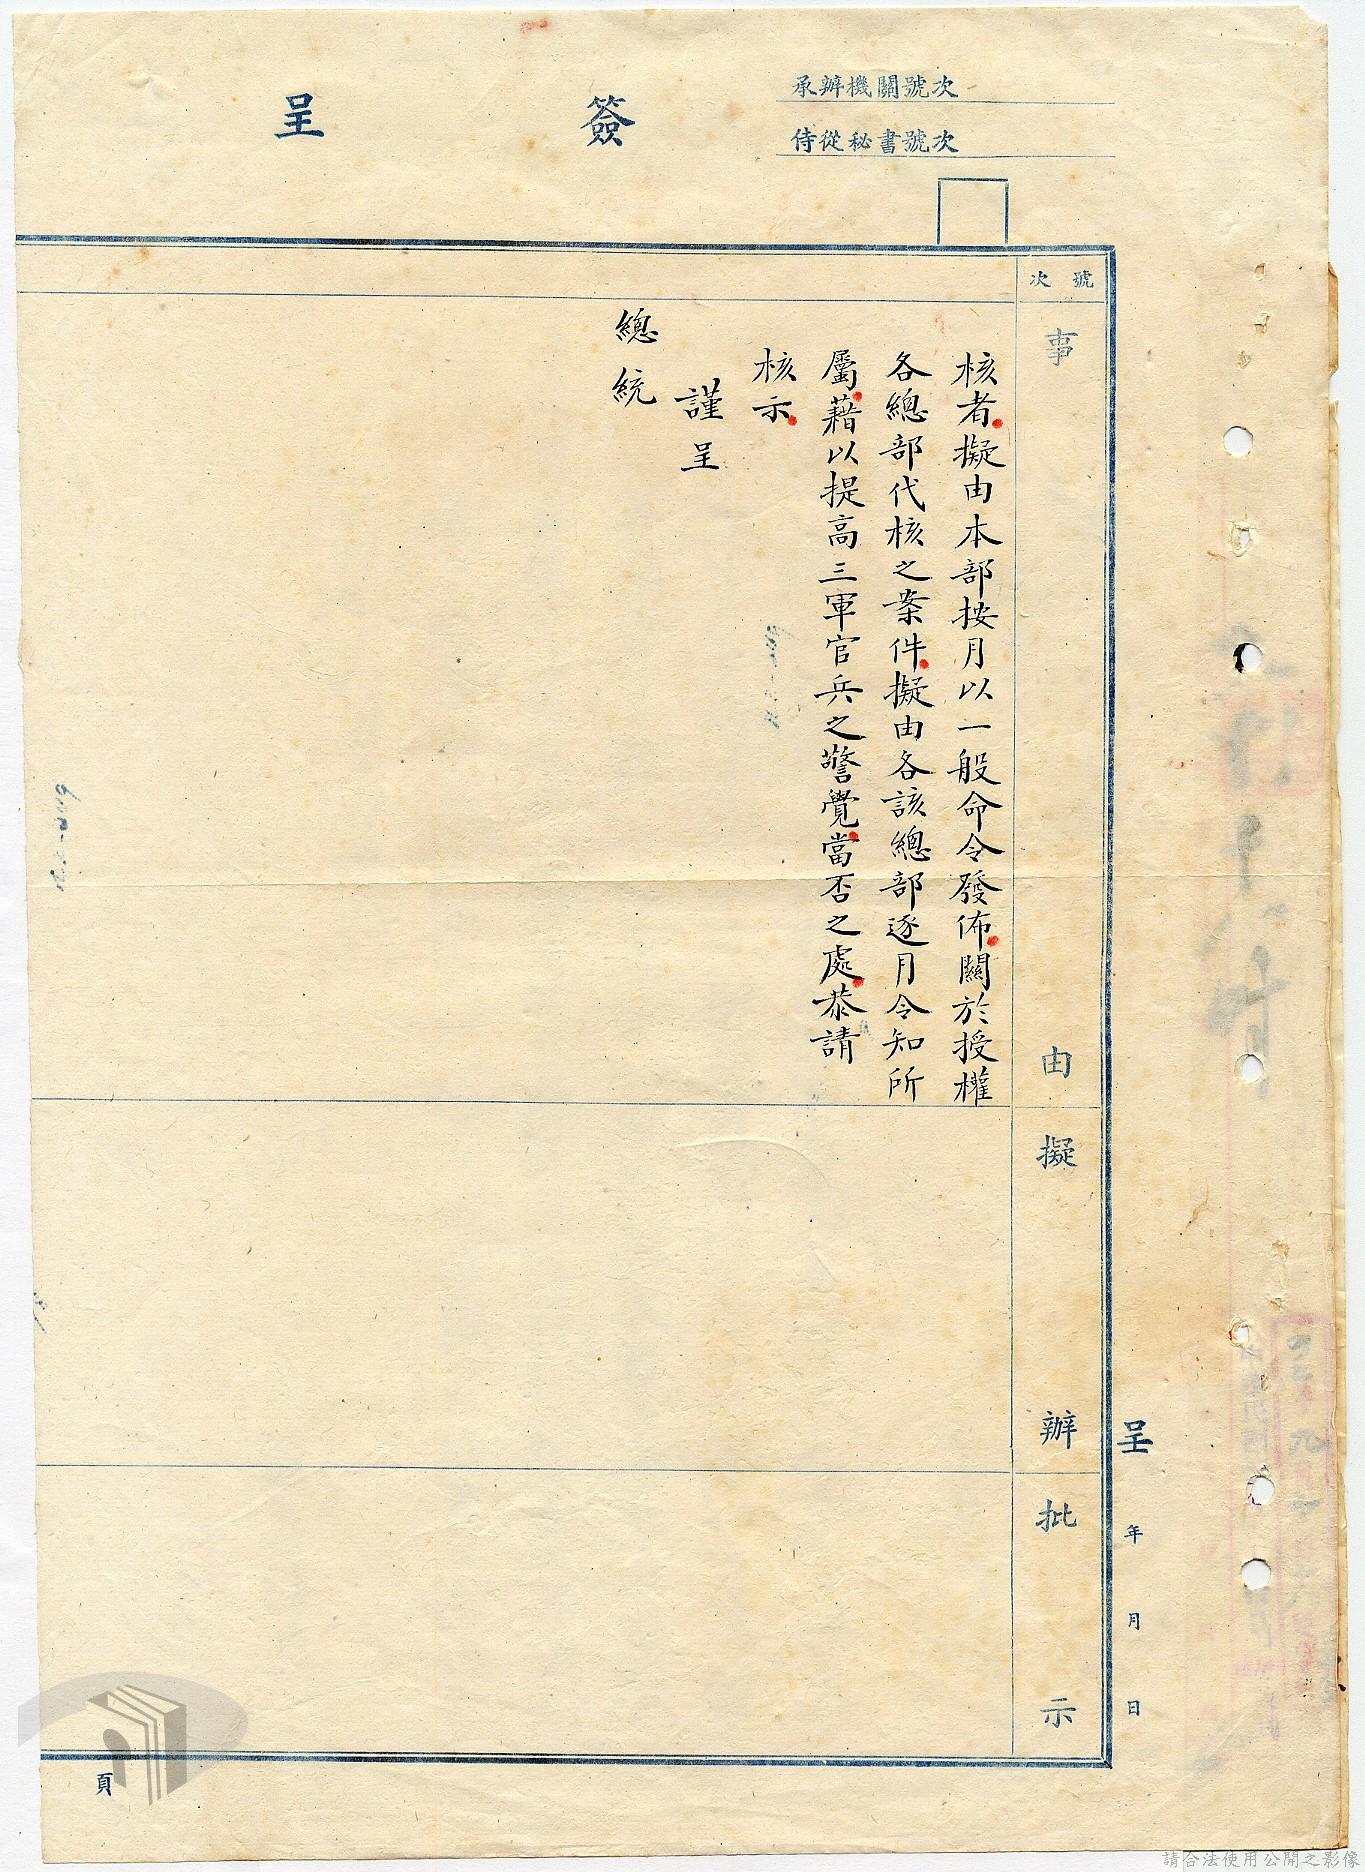 簽呈
承辦機關號次
侍從秘書號次
號次
事由
擬辦
批示
呈 年 月 日
核者擬由本部按月以一般命令發佈關於授權
各總部代核之案件擬由各該總部逐月令知所
屬藉以提高三軍官兵之警覺當否之處恭請
核示
謹呈
總統
頁
請合法使用公開之影像